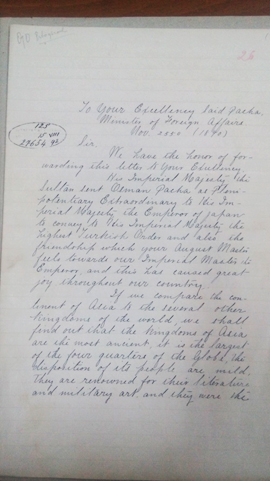 26
To Your Excellency Said Pacha,
Minister of Foreign Affairs
Nov. xxxx (1890)
Sir.
We have the honor of for-
warding this letter to Your Excellency.
His Imperial Majesty the
Sultan sent Osman Pacha as Pleni-
potentiary Extraordinary to the Im-
perial Majesty the Emperor of Japan
to convey to His Imperial Majesty the
highest Turkish Order and also the
friendship which your August Master
feels towards our Imperial Master the
Emperor, and this has caused great
joy throughout our country.
If we compare the con-
tinent of Asia to the several other
Kingdoms of the world, we shall
find out that the Kingdoms of Asia
are the most ancient, it is the largest
of the four quarters of the Globe, the
disposition of its people are mild.
They are renowned for their literature
and military art, and they were the